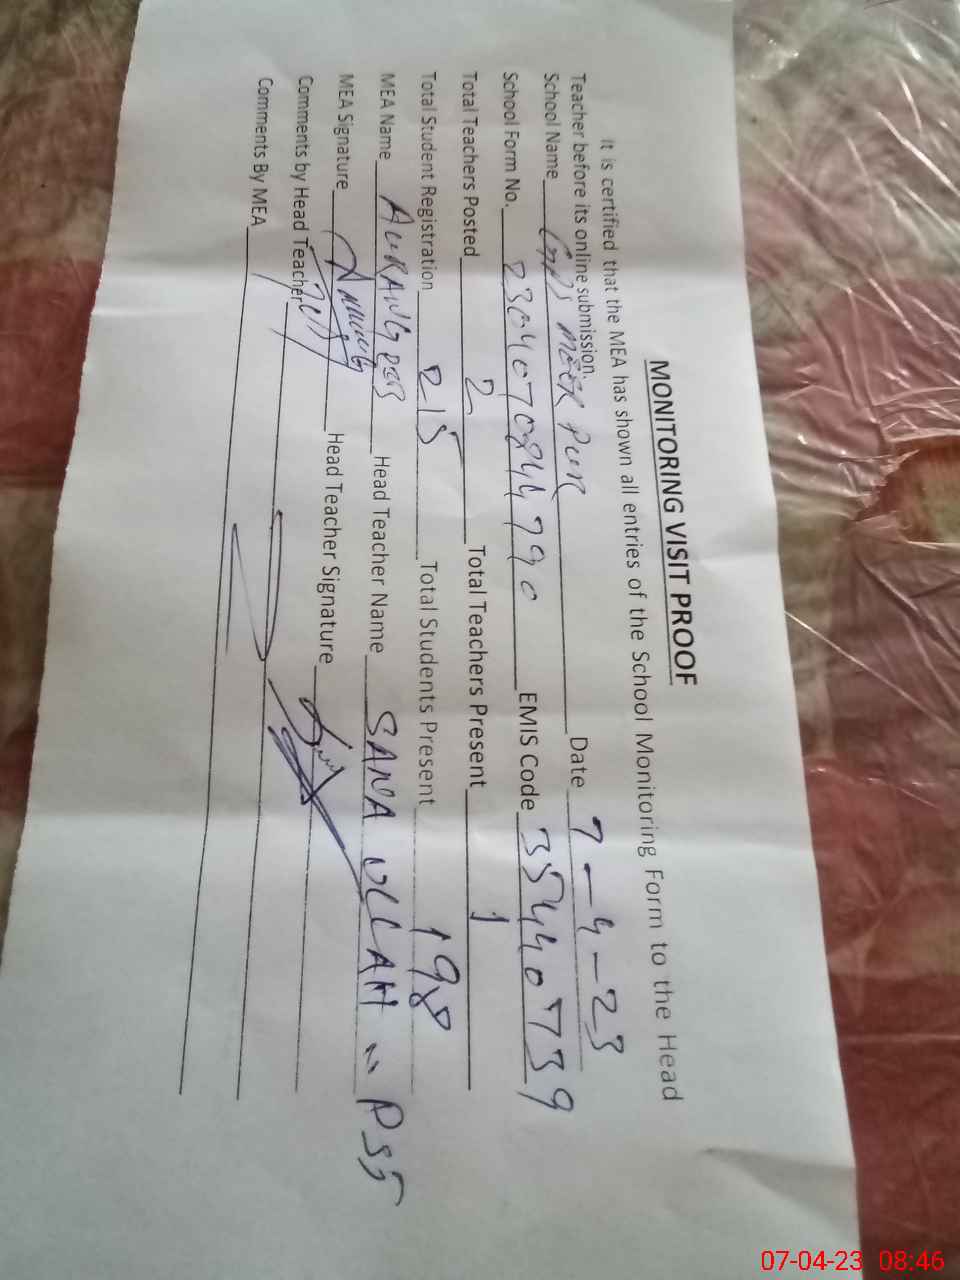 MONITORING VISIT PROOF
It is certified that the MEA has shown all entries of the School Monitoring Form to the Head
Teacher before its online submission.
School Name MEER PUR Date 7-4-23
School Form No. 2304070844790 EMIS Code 35440739
Total Teachers Posted 2 Total Teachers Present 1
Total Student Registration 215 Total Students Present 198
MEA Name AURANGZEB Head Teacher Name SANA ULLAH PST
MEA Signature Head Teacher Signature
Comments by Head Teacher
Comments By MEA
07-04-23 08:46